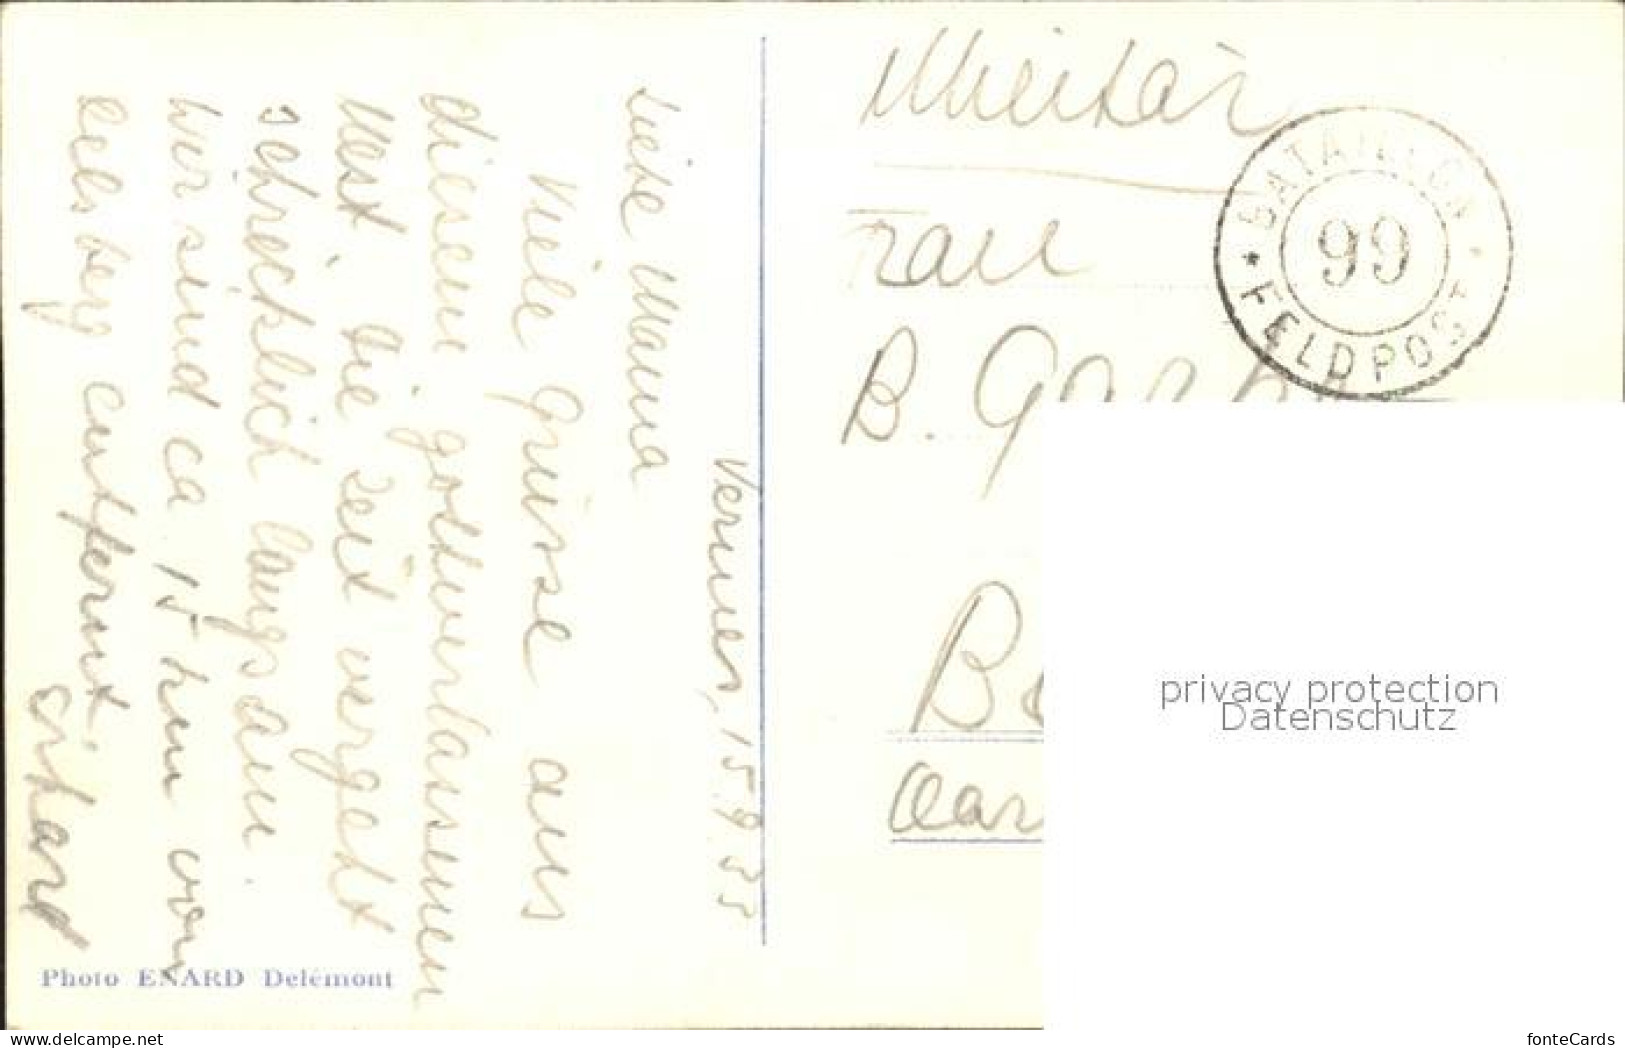 Vermes, 15.9.33
Liebe Mama
Viele Grüsse aus
diesem gottverlassenen
Nest. Die Zeit vergeht
schrecklich langsam.
Wir sind ca 15 km von
Delsberg entfernt.
Erhard
Photo ENARD Delémont
Militär
BATAILLON
99
* FELDPOST
Frau
B.
privacy protection
Datenschutz
www.delcampe.net
fonteCards